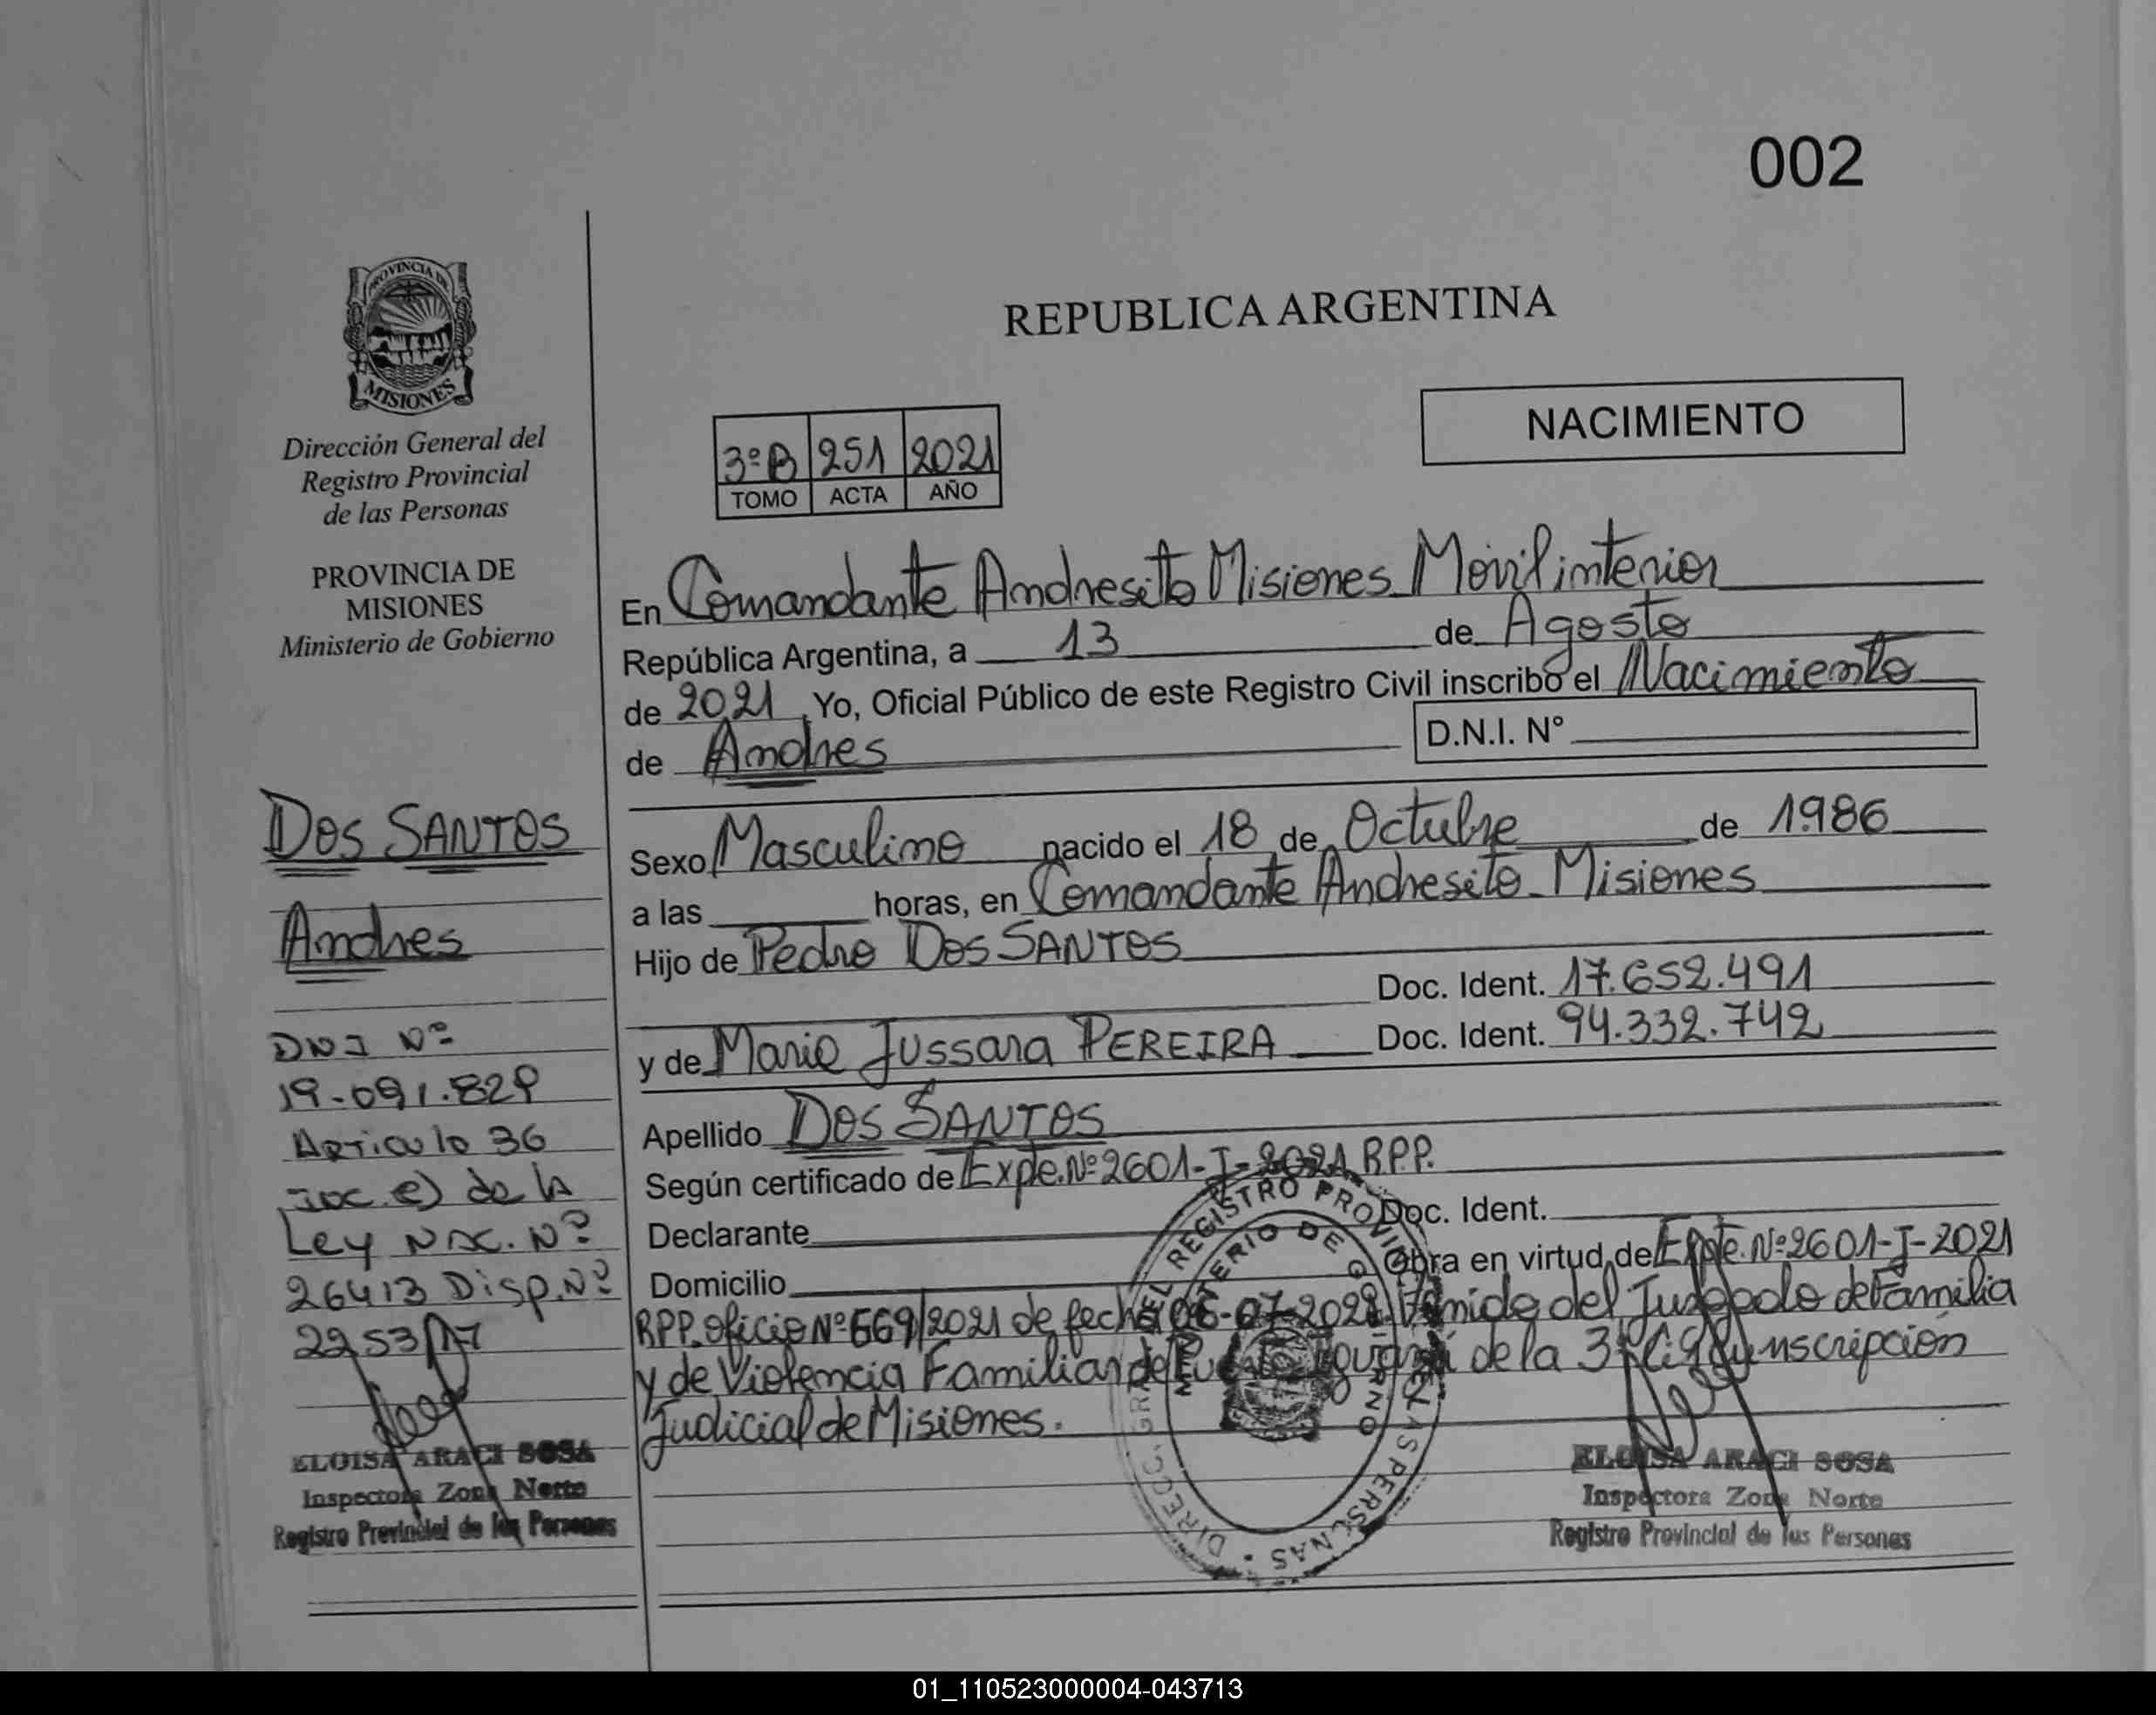 002
PROVINCIA DE
MISIONES
Dirección General del
Registro Provincial
de las Personas
PROVINCIA DE
MISIONES
Ministerio de Gobierno
DOS SANTOS
Andres
DNI Nº
19.091.829
Articulo 36
inc. e) de la
Ley Nac. Nº
26413 Disp. Nº
2253/17
ELOISA ARACI SOSA
Inspectora Zona Norte
Registro Provincial de las Personas
REPUBLICA ARGENTINA
NACIMIENTO
3ºB 251 2021
TOMO ACTA AÑO
En Comandante Andresito Misiones Movil interior
República Argentina, a 13 de Agosto
de 2021, Yo, Oficial Público de este Registro Civil inscribo el Nacimiento
de Andres D.N.I. Nº
Sexo Masculino nacido el 18 de Octubre de 1986
a las horas, en Comandante Andresito Misiones
Hijo de Pedro DOS SANTOS
Doc. Ident. 17.652.491
y de Maria Jussara PEREIRA Doc. Ident. 94.332.742
Apellido DOS SANTOS
Según certificado de Expte. Nº 2601-J-2021 R.P.P.
Declarante Doc. Ident.
Domicilio Obra en virtud de Expte. Nº 2601-J-2021
RPP. oficio Nº 669/2021 de fecha -07-2021 del Juzgado de Familia
y de Violencia Familiar de de la 3 inscripción
Judicial de Misiones.
DIRECC. GRAL. DEL REGISTRO PROVINCIAL DE LAS PERSONAS
MINISTERIO DE GOBIERNO
ELOISA ARACI SOSA
Inspectora Zona Norte
Registro Provincial de las Personas
01_110523000004-043713